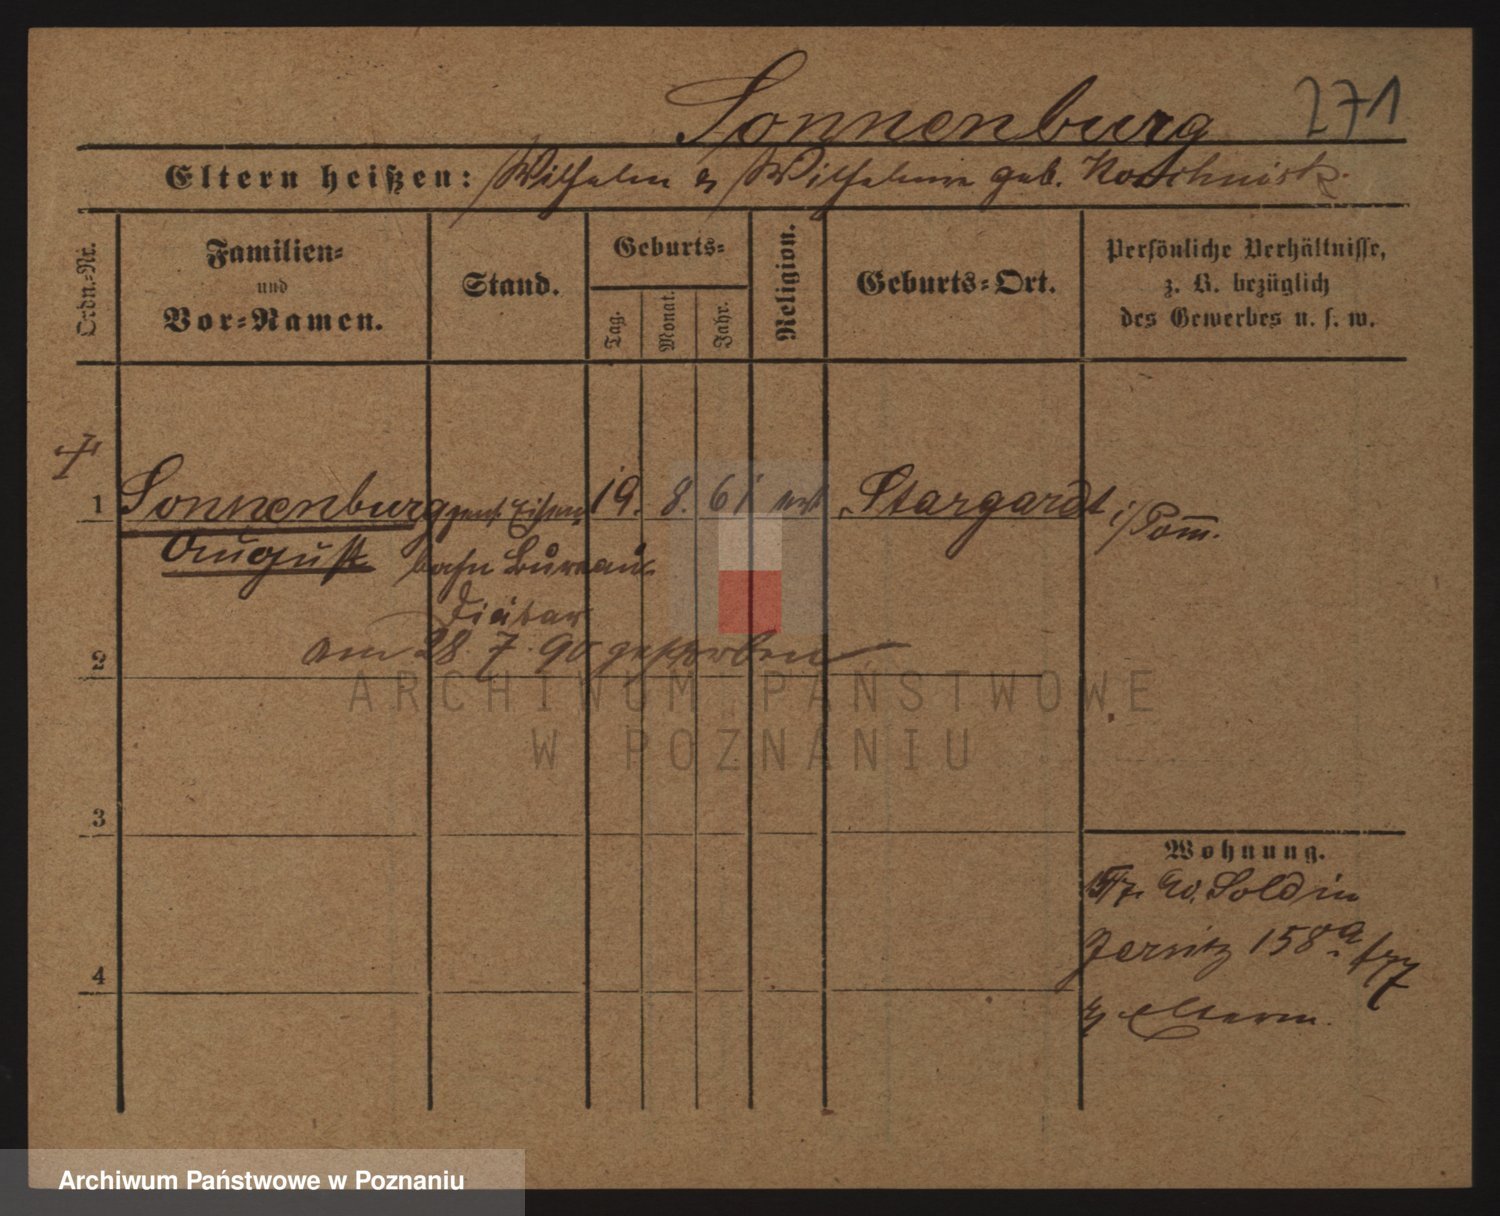 Sonnenburg 271
Eltern heißen: Wilhelm & Wilhelmine geb.
Ordn.-Nr.
Familien-
und
Vor-Namen.
Stand.
Geburts-
Tag.
Monat.
Jahr.
Religion.
Geburts-Ort.
Persönliche Verhältnisse,
z. B. bezüglich
des Gewerbes u. s. w.
1 Sonnenburg Eisen 19. 8. 61 Stargardt i/Pom.
August bahn Bureau
Diätar
am 28. 7. 90 gestorben
2
3
4
Wohnung.
Soldin
Jersitz 158a
Eltern.
ARCHIWUM PAŃSTWOWE
W POZNANIU
Archiwum Państwowe w Poznaniu